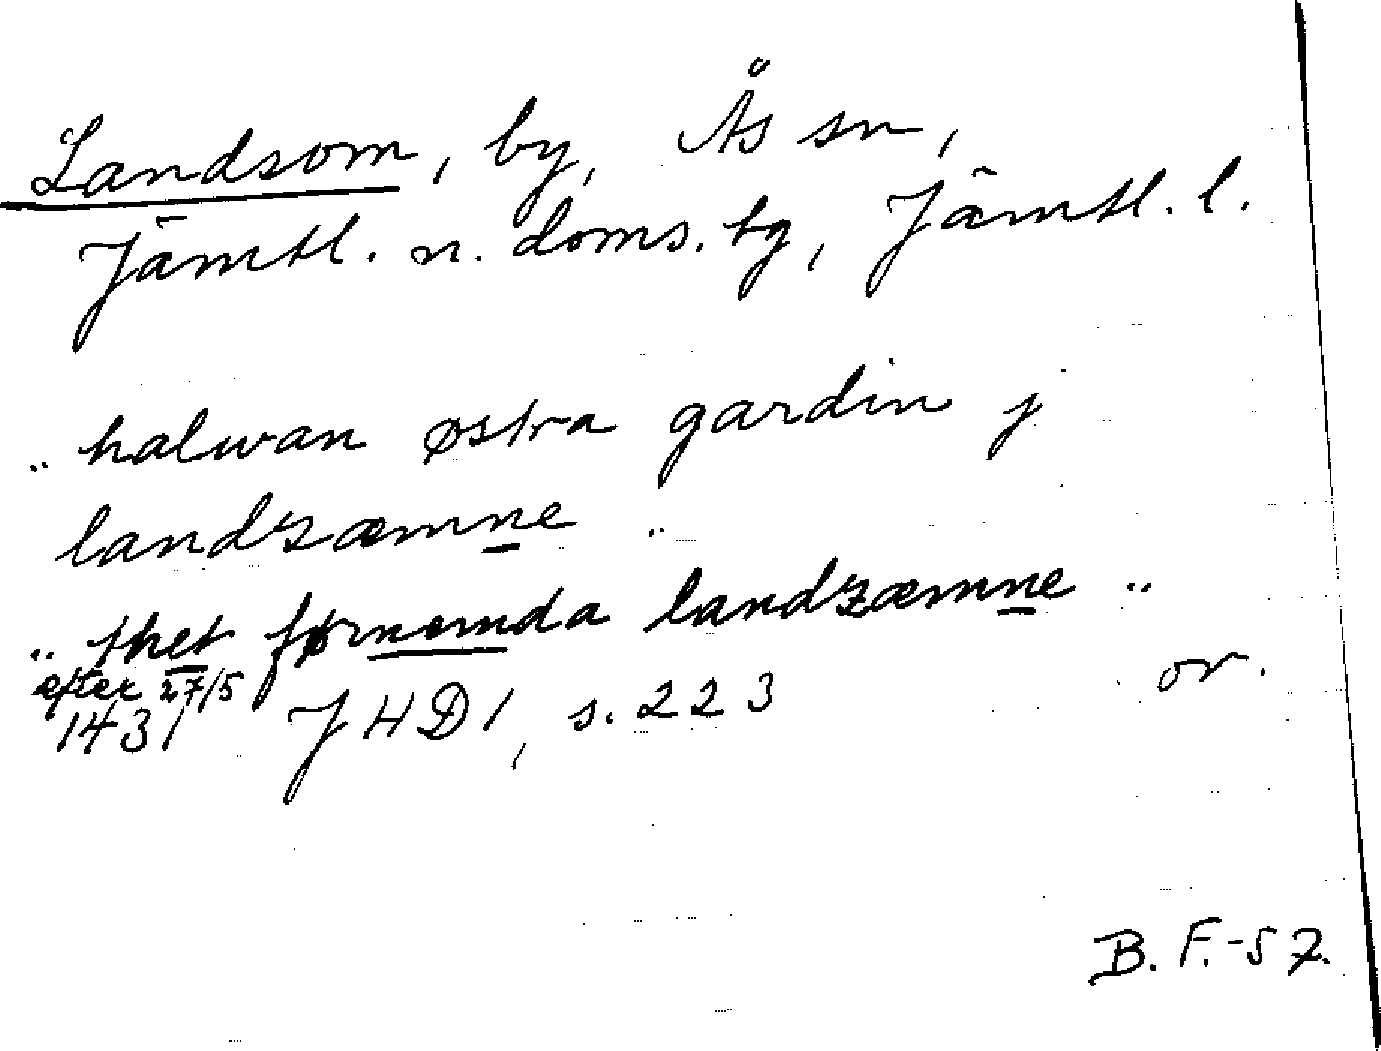 Landsom, by, Ås sn,
Jämtl. n. doms. tg, Jämtl. l.
"halwan østra gardin j
landzæmne"
"thet førnemda landzæmne"
efter 27/5
1431 JHD1, s. 223 or.
B. F. -57.